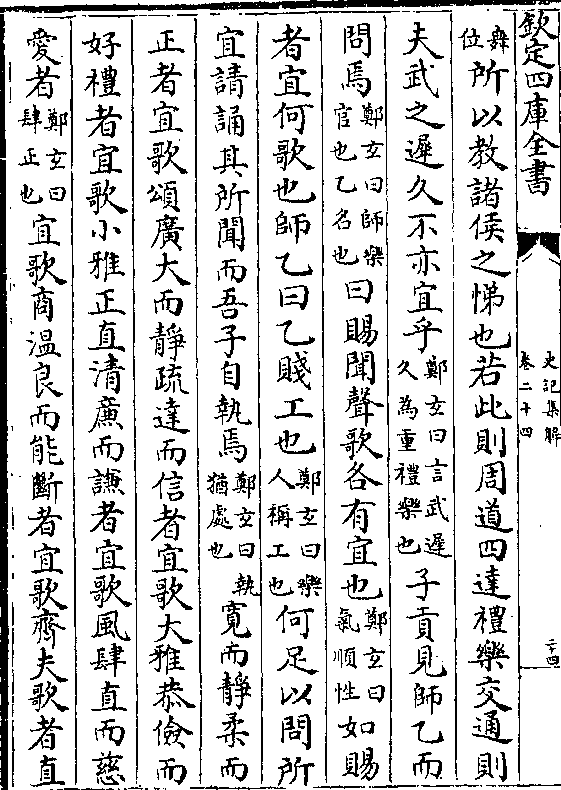 欽定四庫全書
史記集解
卷二十四
二十四
舞位所以教諸侯之悌也若此則周道四達禮樂交通則
夫武之遲久不亦宜乎鄭玄曰言武遲久為重禮樂也子貢見師乙而
問焉鄭玄曰師樂官也乙名也曰賜聞聲歌各有宜也鄭玄曰氣順性如賜
者宜何歌也師乙曰乙賤工也鄭玄曰樂人稱工也何足以問所
宜請誦其所聞而吾子自執焉鄭玄曰執猶處也寛而靜柔而
正者宜歌頌廣大而靜疏達而信者宜歌大雅恭儉而
好禮者宜歌小雅正直清廉而謙者宜歌風肆直而慈
愛者鄭玄曰肆正也宜歌商溫良而能斷者宜歌齊夫歌者直